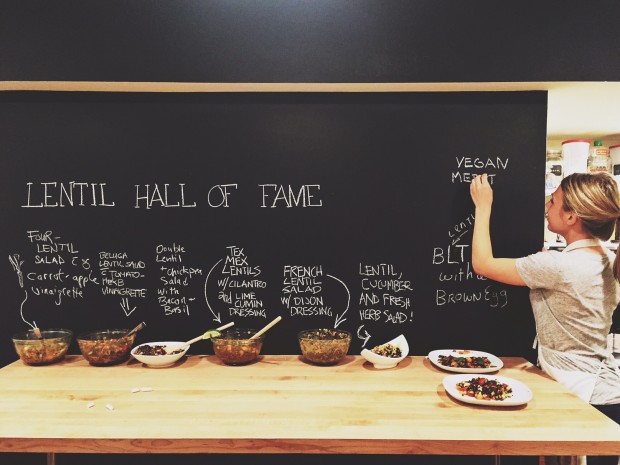 LENTIL HALL OF FAME
FOUR-
LENTIL
SALAD
Carrot-apple
vinaigrette
BELUGA
LENTIL SALAD
TOMATO-
HERB
VINAIGRETTE
Double
Lentil
+ chickpea
Salad
with
Bacon +
Basil
TEX
MEX
LENTILS
W/CILANTRO
and LIME
CUMIN
DRESSING
FRENCH
LENTIL
SALAD
W/DIJON
DRESSING
LENTIL,
CUCUMBER
AND FRESH
HERB SALAD!
VEGAN
LENTIL
BLT
with
BROWN Egg